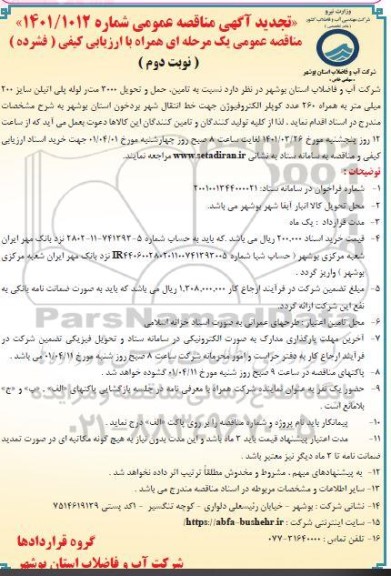 وزارت نیرو
شرکت مهندسی آب و فاضلاب کشور
شرکت آب و فاضلاب استان بوشهر
«تجدید آگهی مناقصه عمومی شماره ۱۴۰۱/۱۰۱۲»
مناقصه عمومی یک مرحله ای همراه با ارزیابی کیفی ( فشرده )
( نوبت دوم )
شرکت آب و فاضلاب استان بوشهر در نظر دارد نسبت به تامین، حمل و تحویل ۳۰۰۰ متر لوله پلی اتیلن سایز ۲۰۰
میلی متر به همراه ۲۶۰ عدد کوپلر الکتروفیوژن جهت خط انتقال شهر بردخون استان بوشهر به شرح مشخصات
مندرج در اسناد اقدام نماید . لذا از کلیه تولید کنندگان و تامین کنندگان این کالاها دعوت بعمل می آید که از ساعت
۱۲ روز پنجشنبه مورخ ۱۴۰۱/۰۳/۲۶ لغایت ساعت ۸ صبح روز چهارشنبه مورخ ۰۱/۰۴/۰۱ جهت خرید اسناد ارزیابی
کیفی و مناقصه به سامانه ستاد به نشانی www.setadiran.ir مراجعه نمایند.
توضیحات :
۱- شماره فراخوان در سامانه ستاد: ۲۰۰۱۰۰۱۳۴۴۰۰۰۰۲۱
۲- محل تحویل کالا انبار آبفا شهر بوشهر می باشد.
۳- مدت قرارداد : یک ماه
۴- قیمت خرید اسناد ۲۰۰,۰۰۰ ریال می باشد .که باید به حساب شماره ۵-۷۴۱۳۹۳-۱۱-۲۸۰۲ نزد بانک مهر ایران
شعبه مرکزی بوشهر ( حساب شبا شماره IR۴۴۰۶۰۰۲۸۰۲۰۱۱۰۰۷۴۱۳۹۳۰۰۵ نزد بانک مهر ایران شعبه مرکزی
بوشهر ) واریز گردد .
۵- مبلغ تضمین شرکت در فرآیند ارجاع کار ۱,۳۰۸,۰۰۰,۰۰۰ ریال می باشد که باید به صورت ضمانت نامه بانکی به
نفع این شرکت ارائه گردد.
۶- محل تامین اعتبار : طرحهای عمرانی به صورت اسناد خزانه اسلامی
۷- آخرین مهلت بارگذاری مدارک به صورت الکترونیکی در سامانه ستاد و تحویل فیزیکی تضمین شرکت در
فرآیند ارجاع کار به دفتر حراست و امور محرمانه شرکت ساعت ۸ صبح روز شنبه مورخ ۰۱/۰۴/۱۱ می باشد .
۸- پاکتهای مناقصه در ساعت ۹ صبح روز شنبه مورخ ۰۱/۰۴/۱۱ گشوده خواهد شد .
۹- حضور یک نفر به عنوان نماینده شرکت همراه با معرفی نامه در جلسه بازگشایی پاکتهای «الف» ، «ب» و «ج»
بلامانع است .
۱۰- پیمانکار باید نام پروژه و شماره مناقصه را بر روی پاکت «الف» درج نماید .
۱۱- مدت اعتبار پیشنهاد قیمت باید ۳ ماه باشد و این مدت بدون نیاز به هیچ گونه مکاتبه ای در صورت تمدید
ضمانت نامه تا ۳ ماه دیگر نیز معتبر باشد .
۱۲- به پیشنهادهای مبهم ، مشروط و مخدوش مطلقاً ترتیب اثر داده نخواهد شد .
۱۳- سایر اطلاعات و مشخصات مربوطه در اسناد مناقصه مندرج می باشد .
۱۴- نشانی شرکت : بوشهر - خیابان رئیسعلی دلواری - کوچه تنگسیر - کدپستی ۷۵۱۴۶۱۹۱۳۹
۱۵- سایت اینترنتی شرکت : https://abfa-bushehr.ir/
۱۶- تلفن تماس : ۳۱۶۴۰۰۰۰-۰۷۷
گروه قراردادها
شرکت آب و فاضلاب استان بوشهر